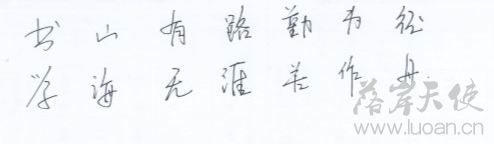 书山有路勤为径
学海无涯苦作舟
落岸天使
www.luoan.cn